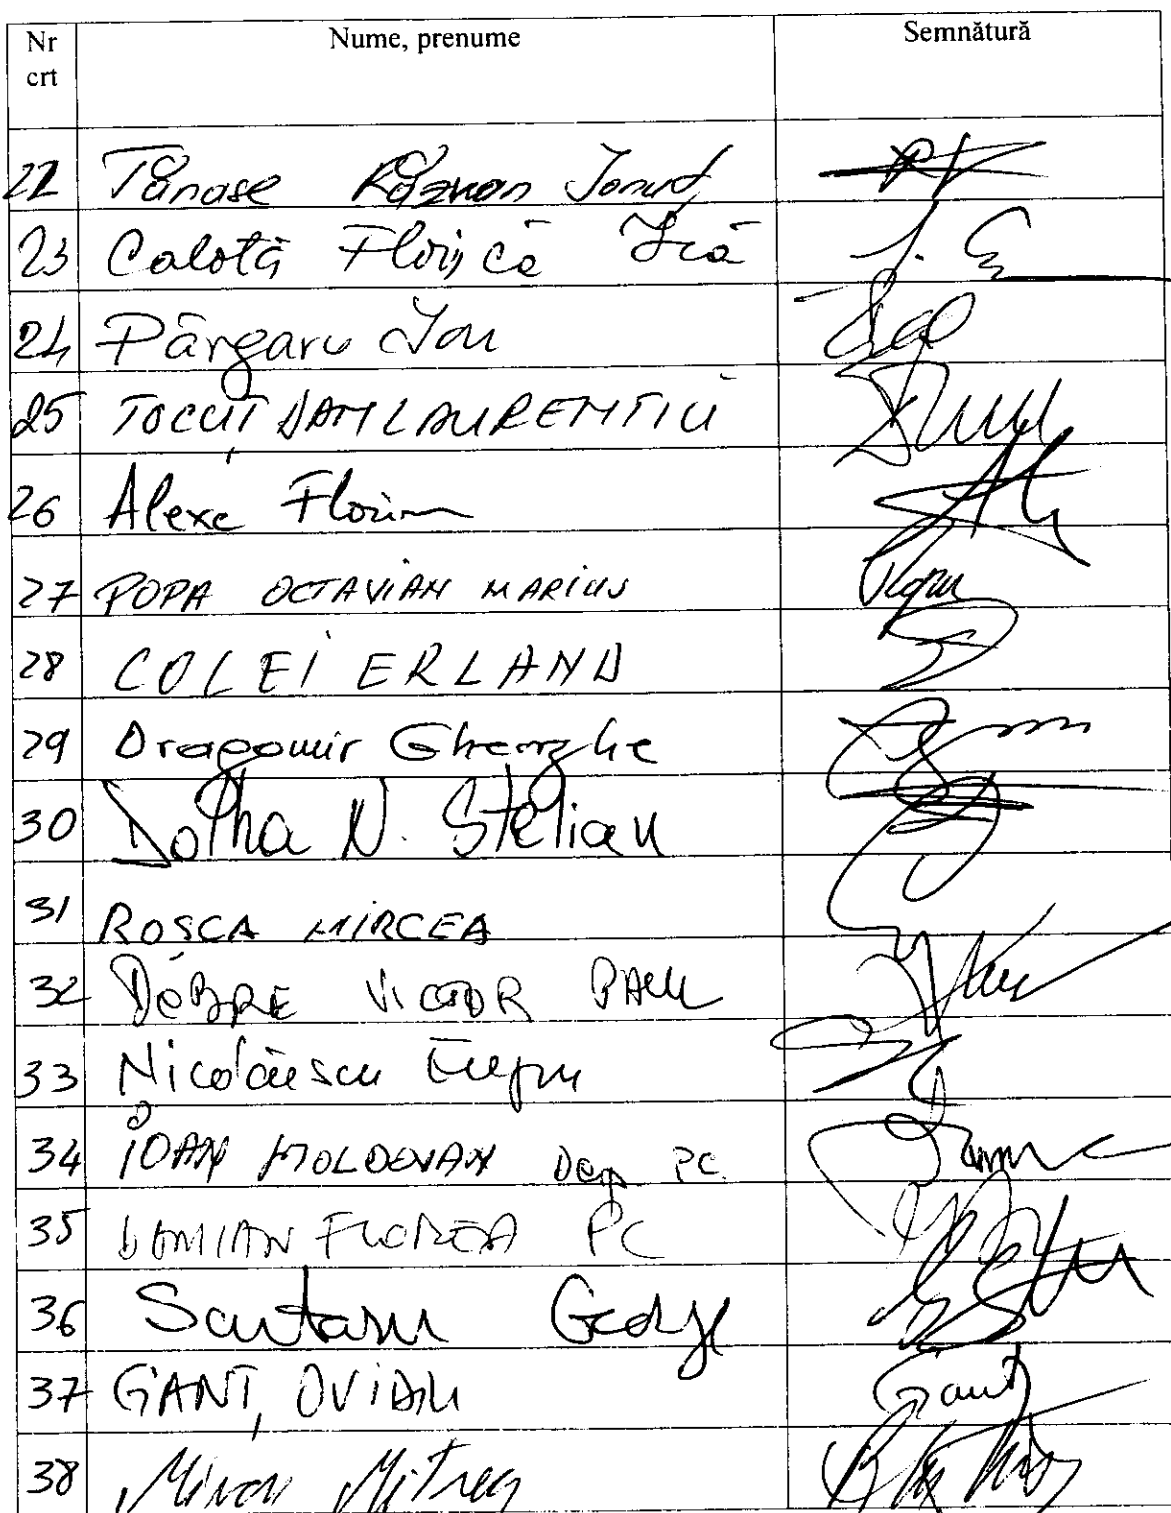 Nr crt Nume, prenume Semnătură
22 Tănase Răzvan Ionuț
23 Calotă Florică Ică
24 Pârgaru Ion
25 TOCUȚ DAN LAURENTIU
26 Alexe Florin
27 POPA OCTAVIAN MARIUS
28 COLEI ERLAND
29 Dragomir Gheorghe
30 Dolha N. Stelian
31 ROSCA MIRCEA
32 DOBRE VICTOR PAUL
33 Nicolăescu Eugen
34 IOAN MOLDOVAN Dep. PC.
35 DAMIAN FLOREA PC
36 Scutaru George
37 GANȚ OVIDIU Ganț
38 Miron Mitrea